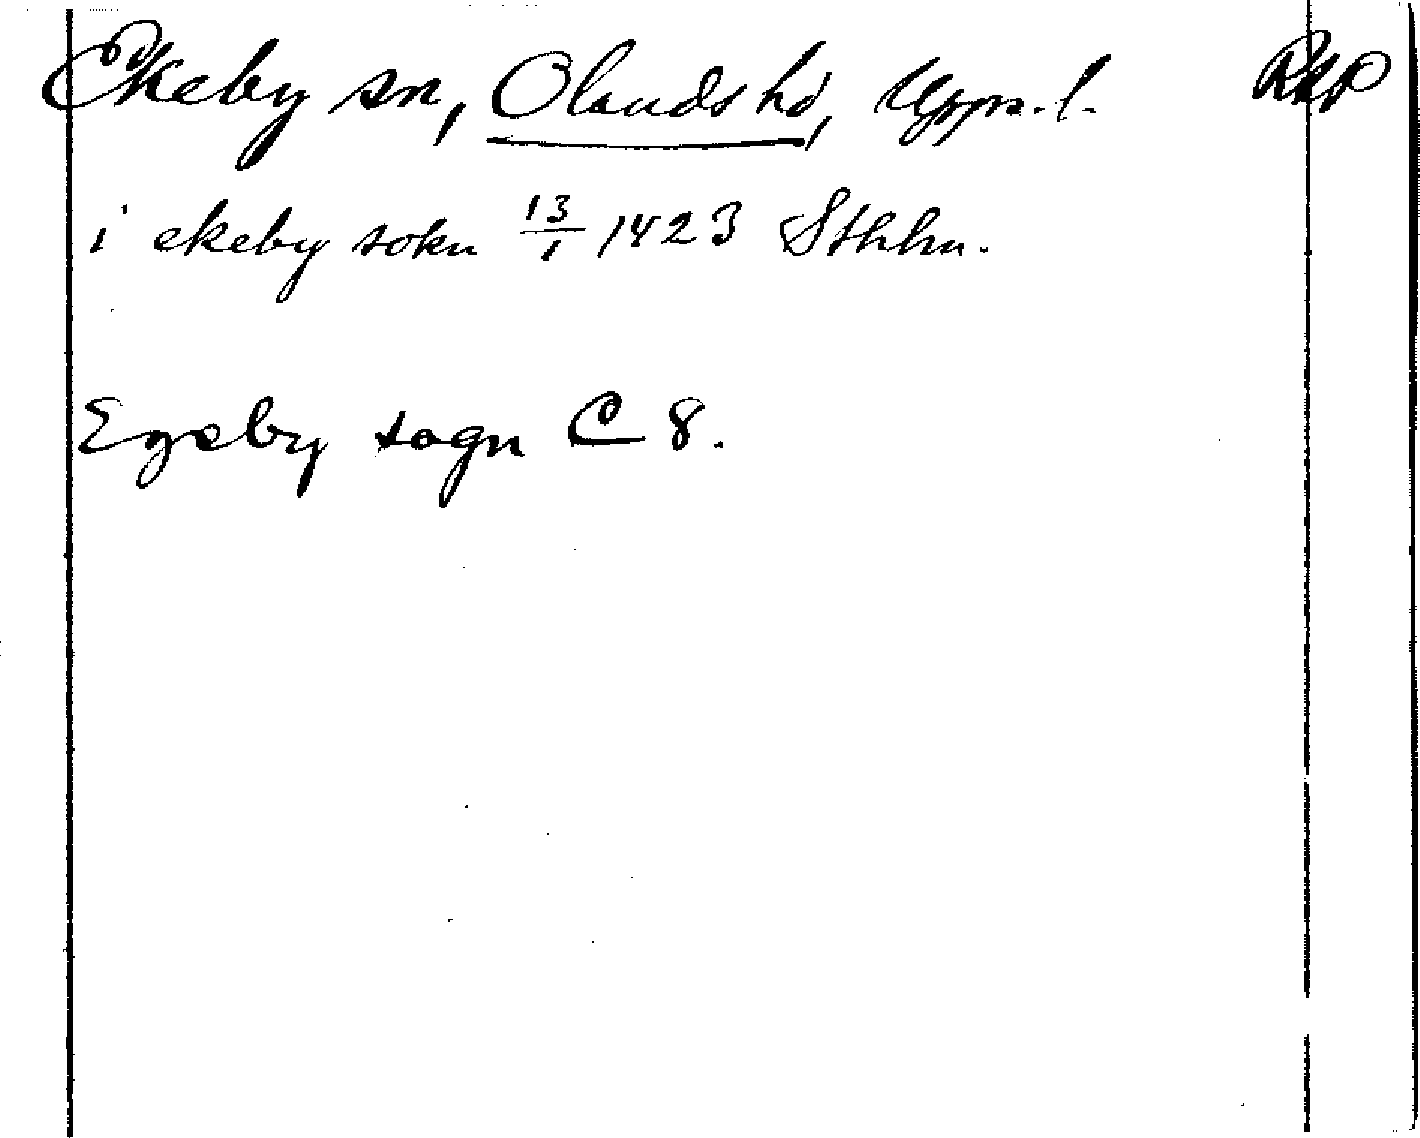 Ekeby sn, Olands hd, Upps. l. RAP
i ekeby sokn 13/1 1423 Sthhu.
Egeby sogn C 8.